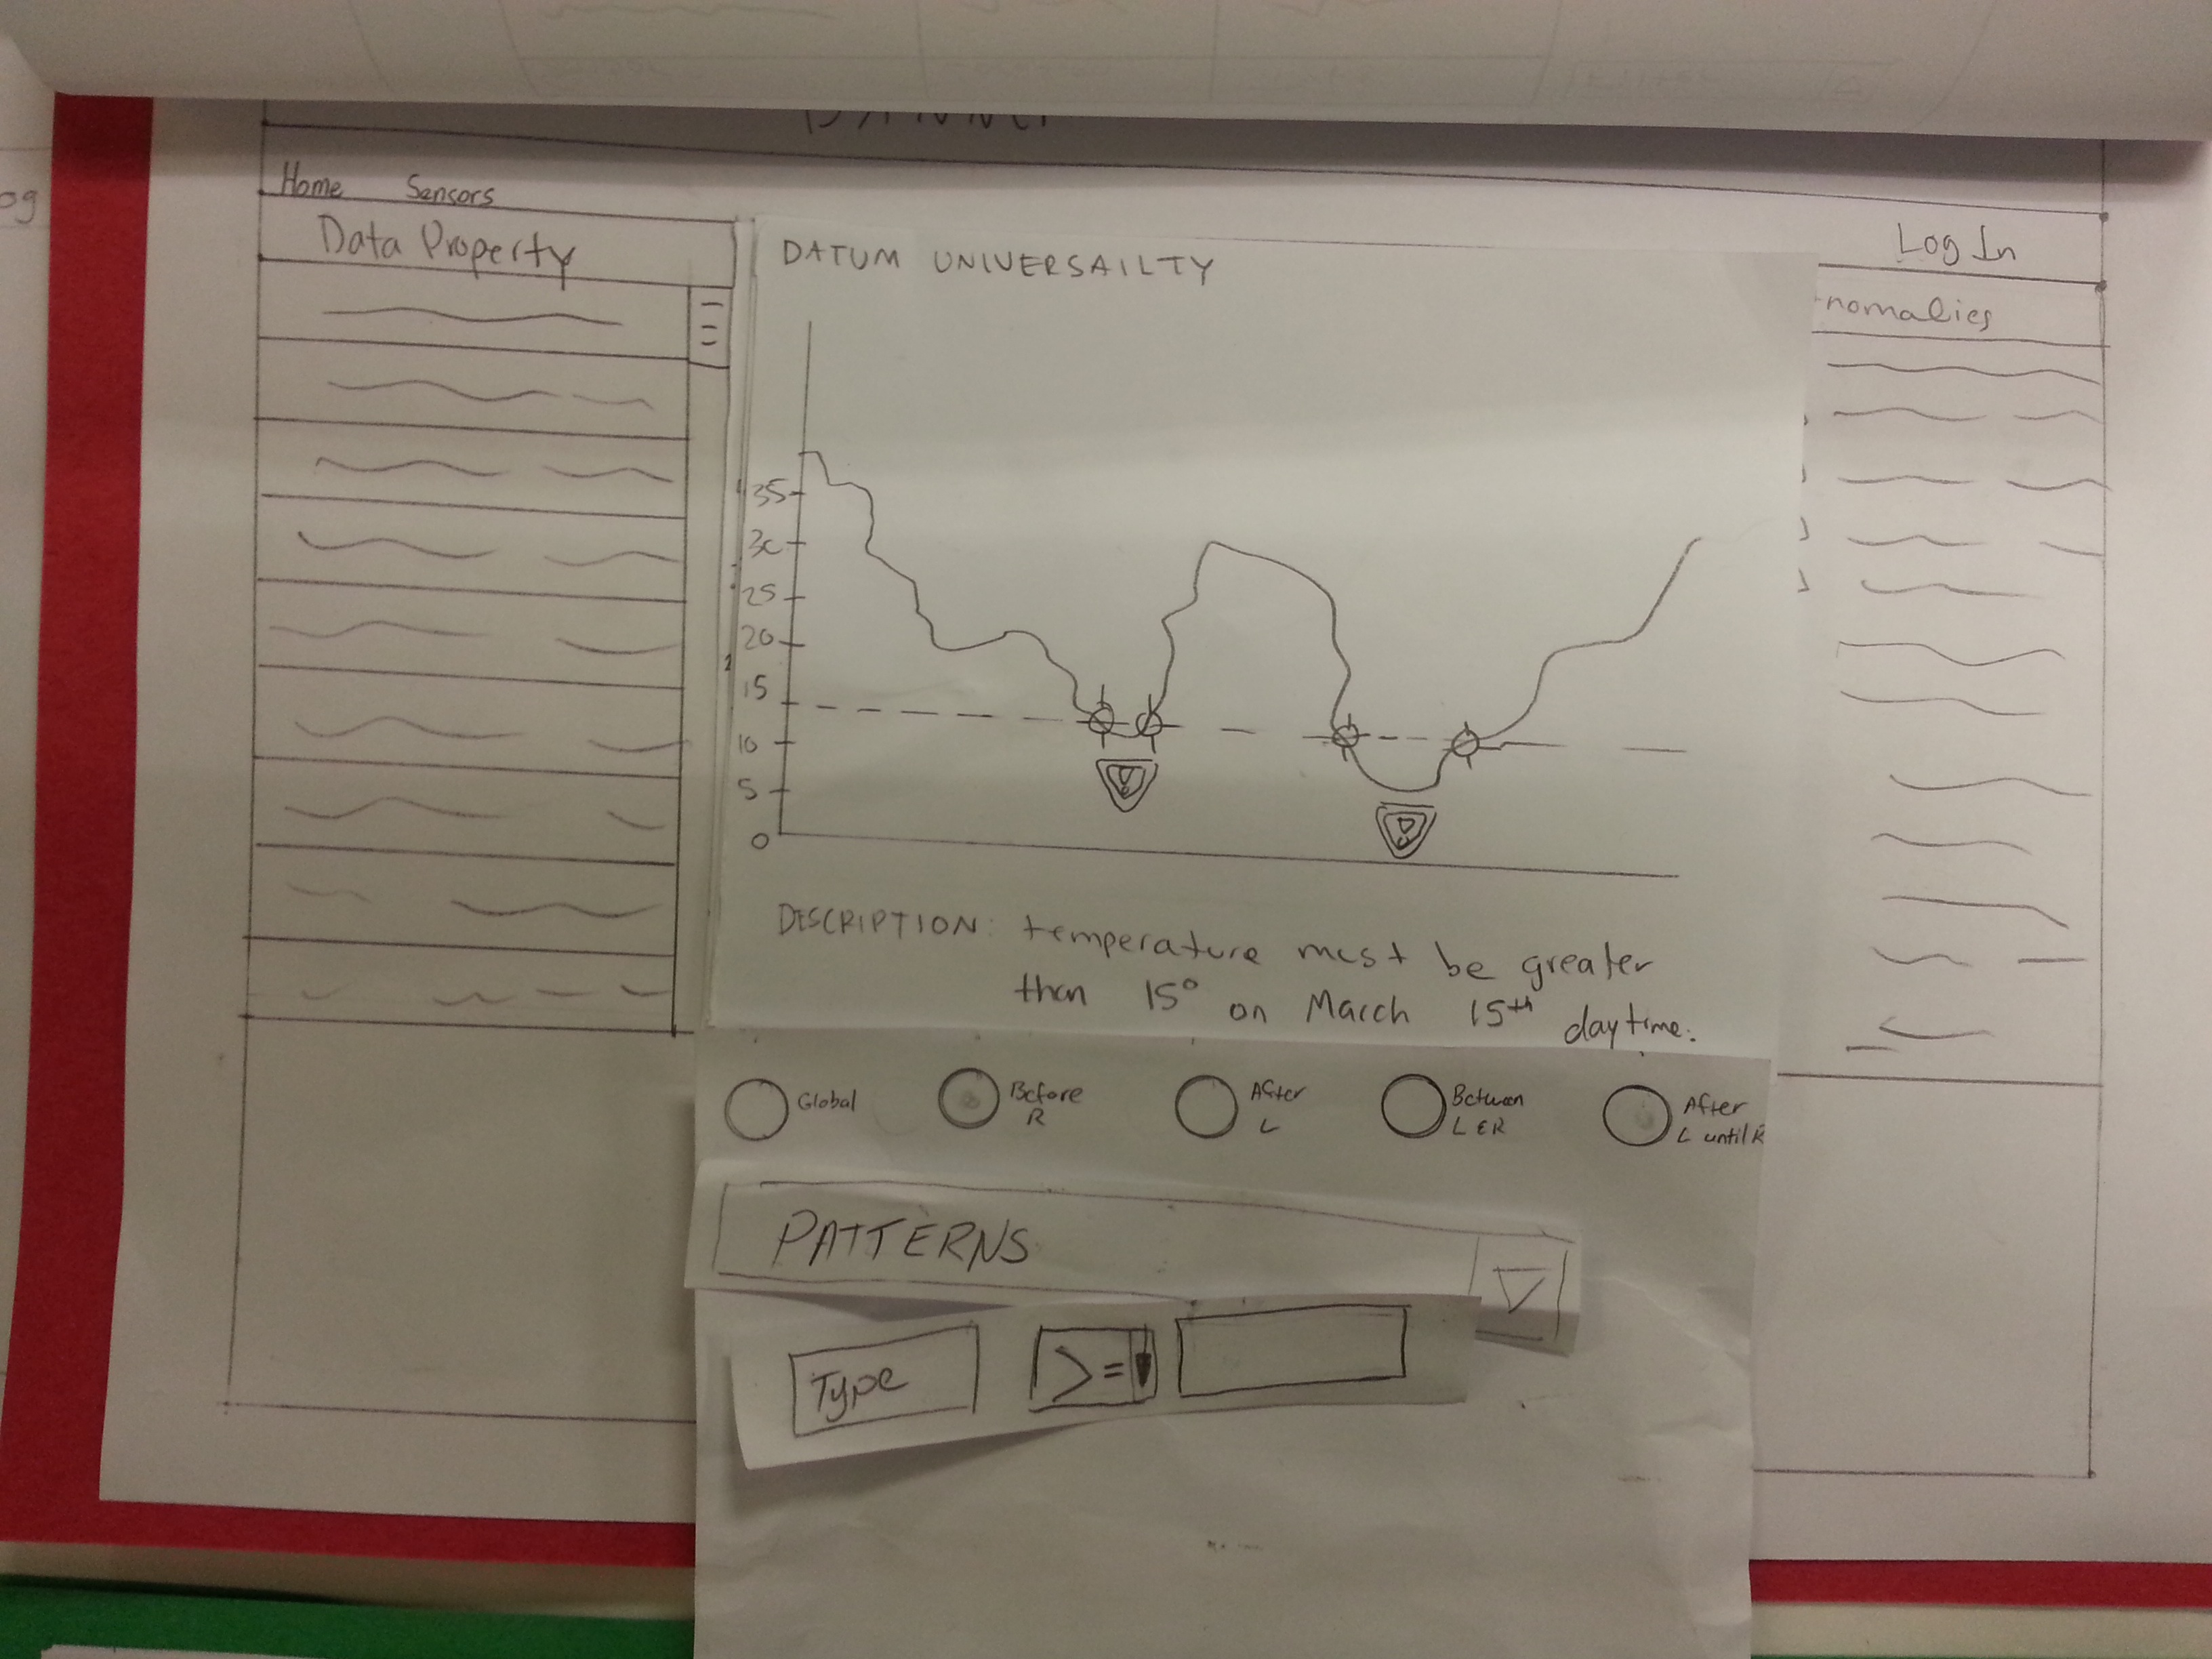 Home Sensors
Log In
Data Property
DATUM UNIVERSAILTY
nomalies
35
30
25
20
15
10
5
0
DESCRIPTION: temperature must be greater
than 15° on March 15th daytime.
Global
Before
R
After
L
Between
L & R
After
L until R
PATTERNS
Type
>=